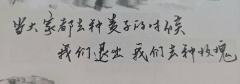 当大家都去种麦子的时候
我们退出 我们去种玫瑰